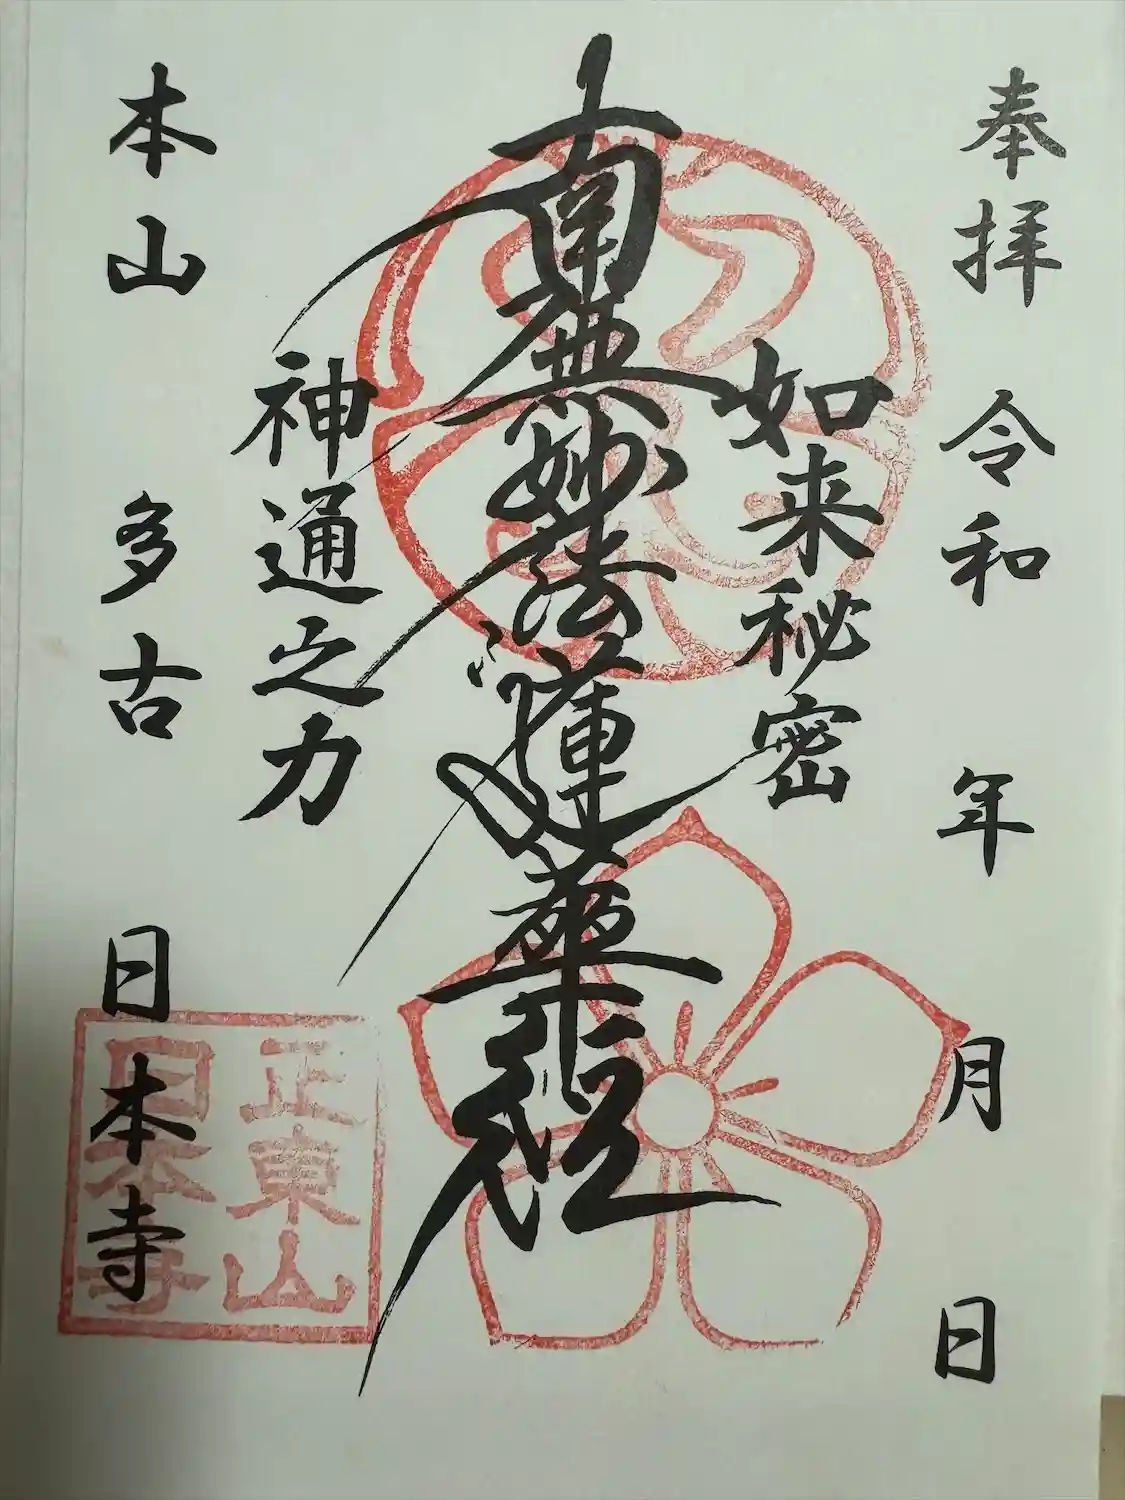 奉拝 令和 年 月 日
如来秘密
南無妙法蓮華経
神通之力
本山 多古 日本寺
正東山
日本寺